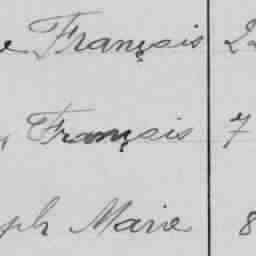 e François 22
, François 7
ph Marie 8